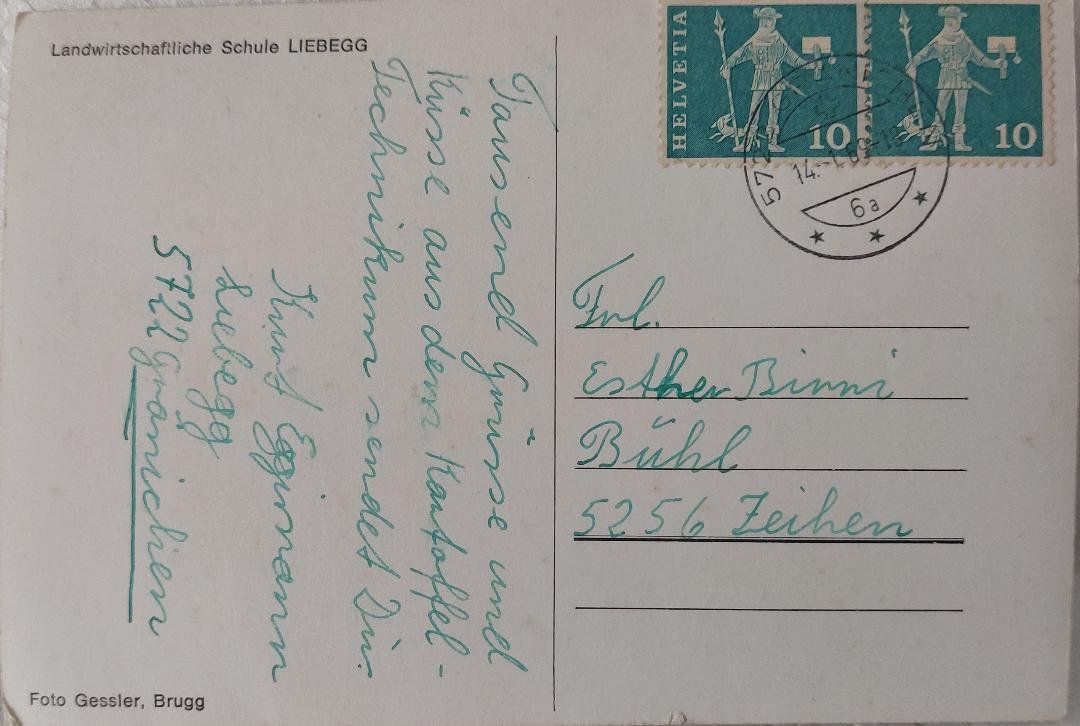 Landwirtschaftliche Schule LIEBEGG
Tausend Grüsse und
Küsse aus dem Kartoffel-
Technikum sendet Dir
Kurt Eggimann
Liebegg
5722 Gränichen
Foto Gessler, Brugg
HELVETIA 10
10
14.-1.69-18
6a
Frl.
Esther Birri
Bühl
5256 Zeihen